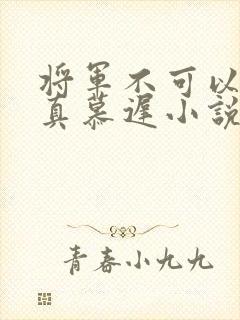 将军不可以
真慕遲小說
青春小九九